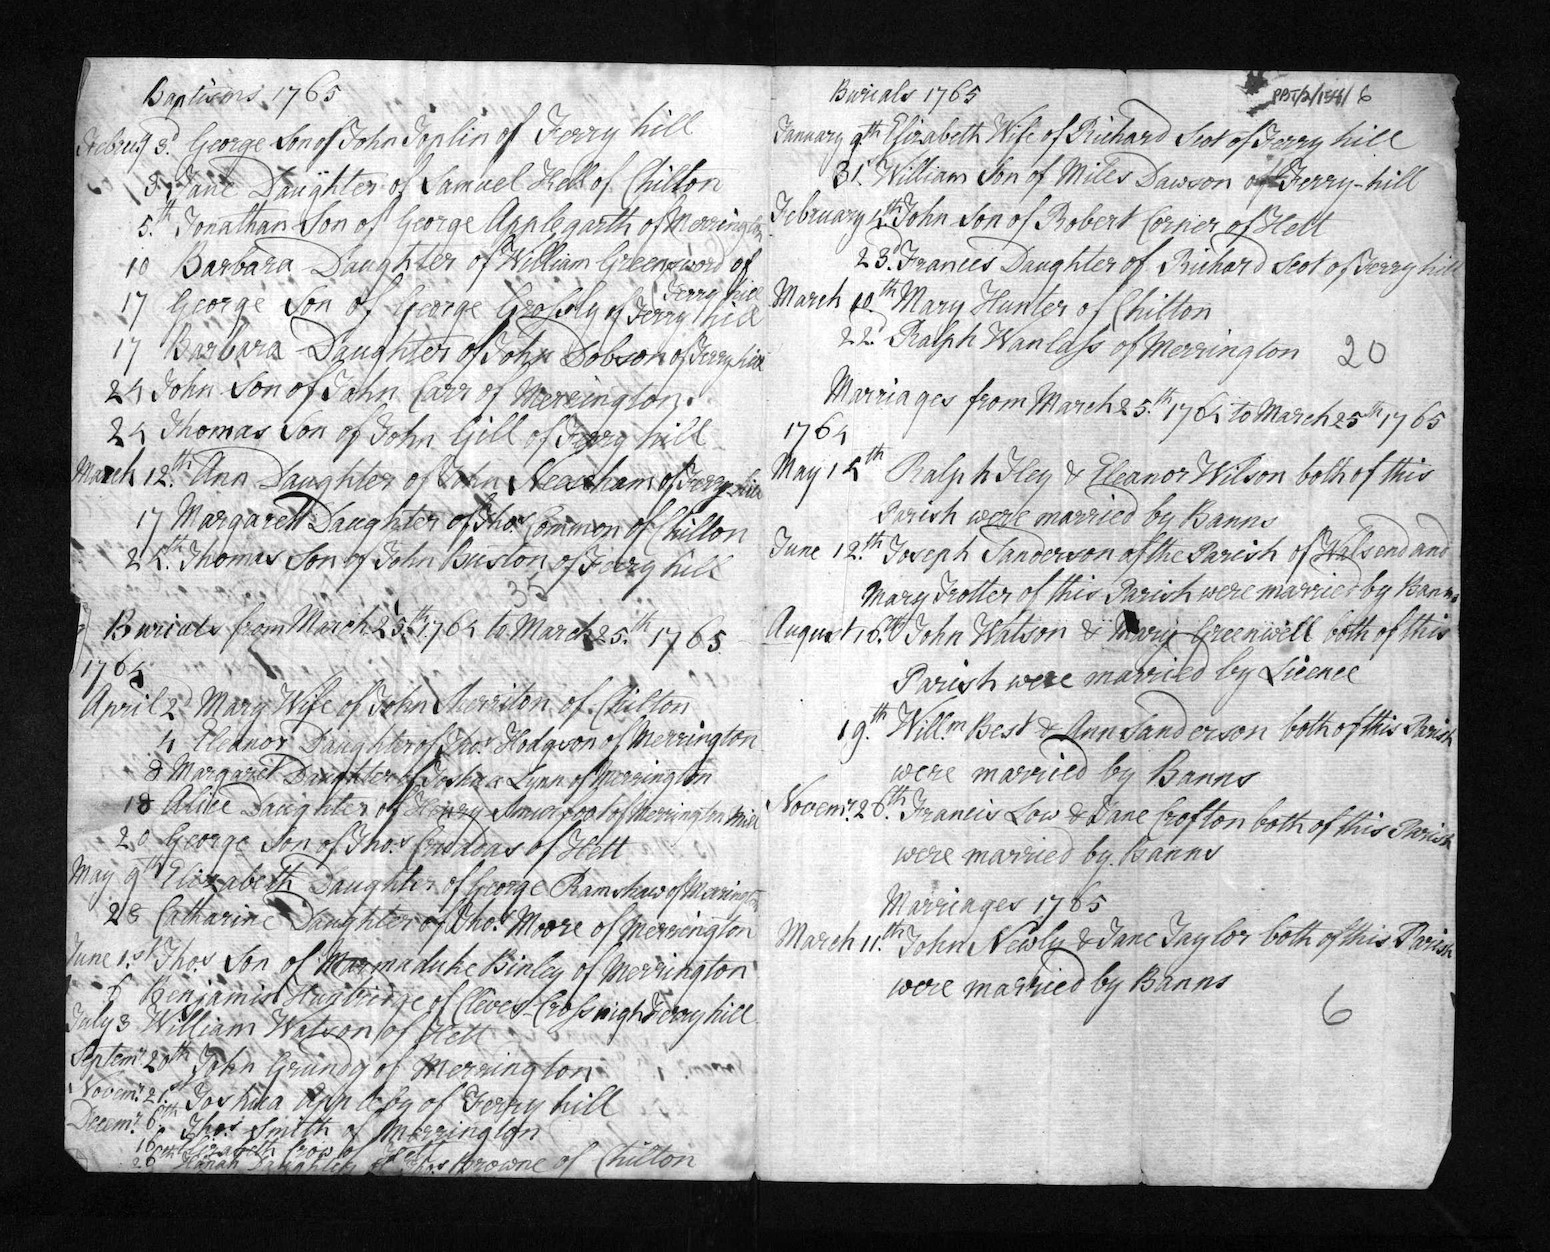 Baptisms 1765
Februy 3d George Son of John Joplin of Ferry hill
3. Jane Daughter of Samuel Hall of Chilton
5th Jonathan Son of George Applegarth of Merrington
10 Barbara Daughter of William Greensword of
Ferry hill
17 George Son of George Crossly of Ferry hill
17 Barbara Daughter of John Dobson of Ferry hill
24 John Son of John Carr of Merrington.
24 Thomas Son of John Gill of Ferry hill
March 12.th Ann Daughter of John Neasham of Ferry hill
17 Margaret Daughter of Thos. Common of Chilton
24.th Thomas Son of John Buston of Ferry hill
35
Burials from March 25.th 1764 to March 25.th 1765
1764
April 2d Mary Wife of John Merriton of Chilton
4 Eleanor Daughter of Thos. Hodgson of Merrington
8 Margaret Daughter of Joshua Lynn of Merrington
18 Alice Daughter of Henry of Merrington Mill
20 George Son of Thos. of Hett
May 9th Elizabeth Daughter of George Ramshaw of Merrington
28 Catharine Daughter of Thos. Moore of Merrington
June 1.st Thos. Son of Marmaduke Binley of Merrington
6 Benjamin of Cleves-Cross nigh Ferry hill
July 3 William Watson of Hett
Septemr. 20th John Grundy of Merrington
Novemr. 21.st Joshua Appleby of Ferry hill
Decemr. 6th Thos. Smith of Merrington
16 Elizabeth Crow of Hett
26 Hanah Daughter of Thos. Browne of Chilton
Burials 1765
PBT/2/154/6
January 9th Elizabeth Wife of Richard Scot of Ferry hill
31. William Son of Miles Dawson of Ferry-hill
February 4th John Son of Robert Corner of Hett
23. Frances Daughter of Richard Scot of Ferry hill
March 10th Mary Hunter of Chilton
22d Ralph Wanlass of Merrington
20
Marriages from March 25.th 1764 to March 25th 1765
1764
May 14th Ralph Iley & Eleanor Wilson both of this
Parish were married by Banns
June 12.th Joseph Sanderson of the Parish of Walsend and
Mary Trotter of this Parish were married by Banns
August 16.th John Watson & Mary Greenwell both of this
Parish were married by Licence
19.th Willm Best & Ann Sanderson both of this Parish
were married by Banns
Novemr. 26.th Francis Low & Jane Crofton both of this Parish
were married by Banns
Marriages 1765
March 11.th John Newly & Jane Taylor both of this Parish
were married by Banns
6